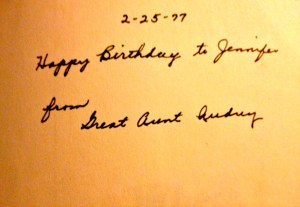 2-25-77
Happy Birthday to Jennifer
from
Great Aunt Audrey